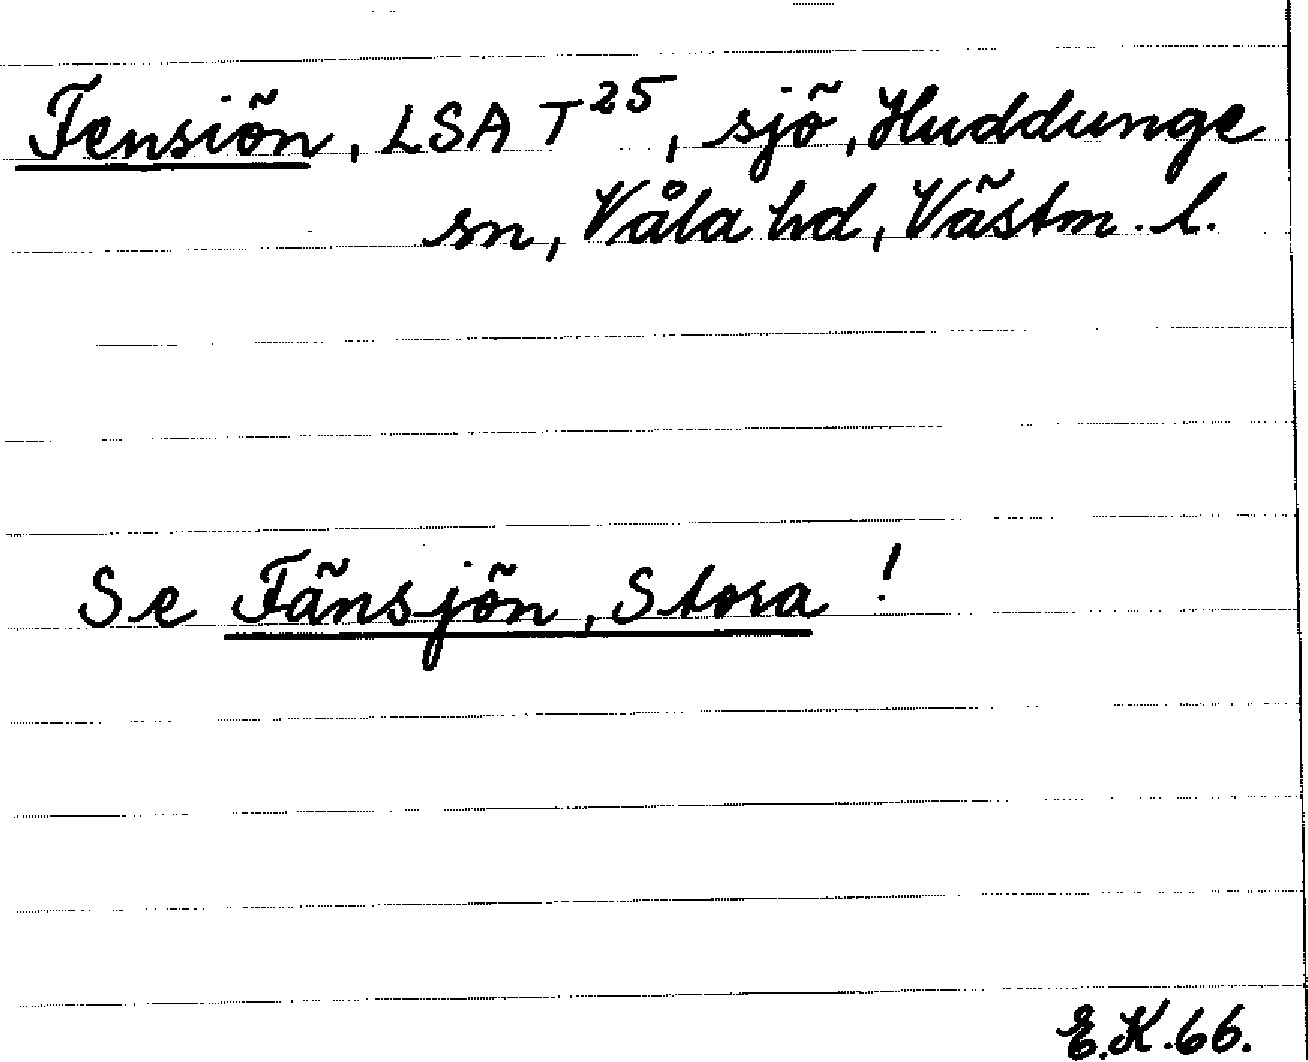 Fensiön, LSA T²⁵, sjö, Huddunge
sn, Våla hd, Västm. l.
Se Fänsjön, Stora !
E.K.66.